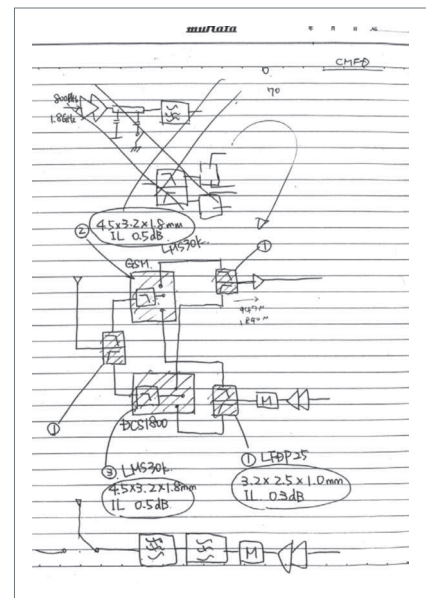 muRata
年 月 日 No.
CMFD
0
70
800MHz
1.8GHz
4.5×3.2×1.8mm
IL 0.5dB
②
LMS30k
GSM
①
947M
1.84M
①
DCS1800
③ LMS30k
4.5×3.2×1.8mm
IL 0.5dB
① LFDP25
3.2×2.5×1.0mm
IL 0.3dB
M
M